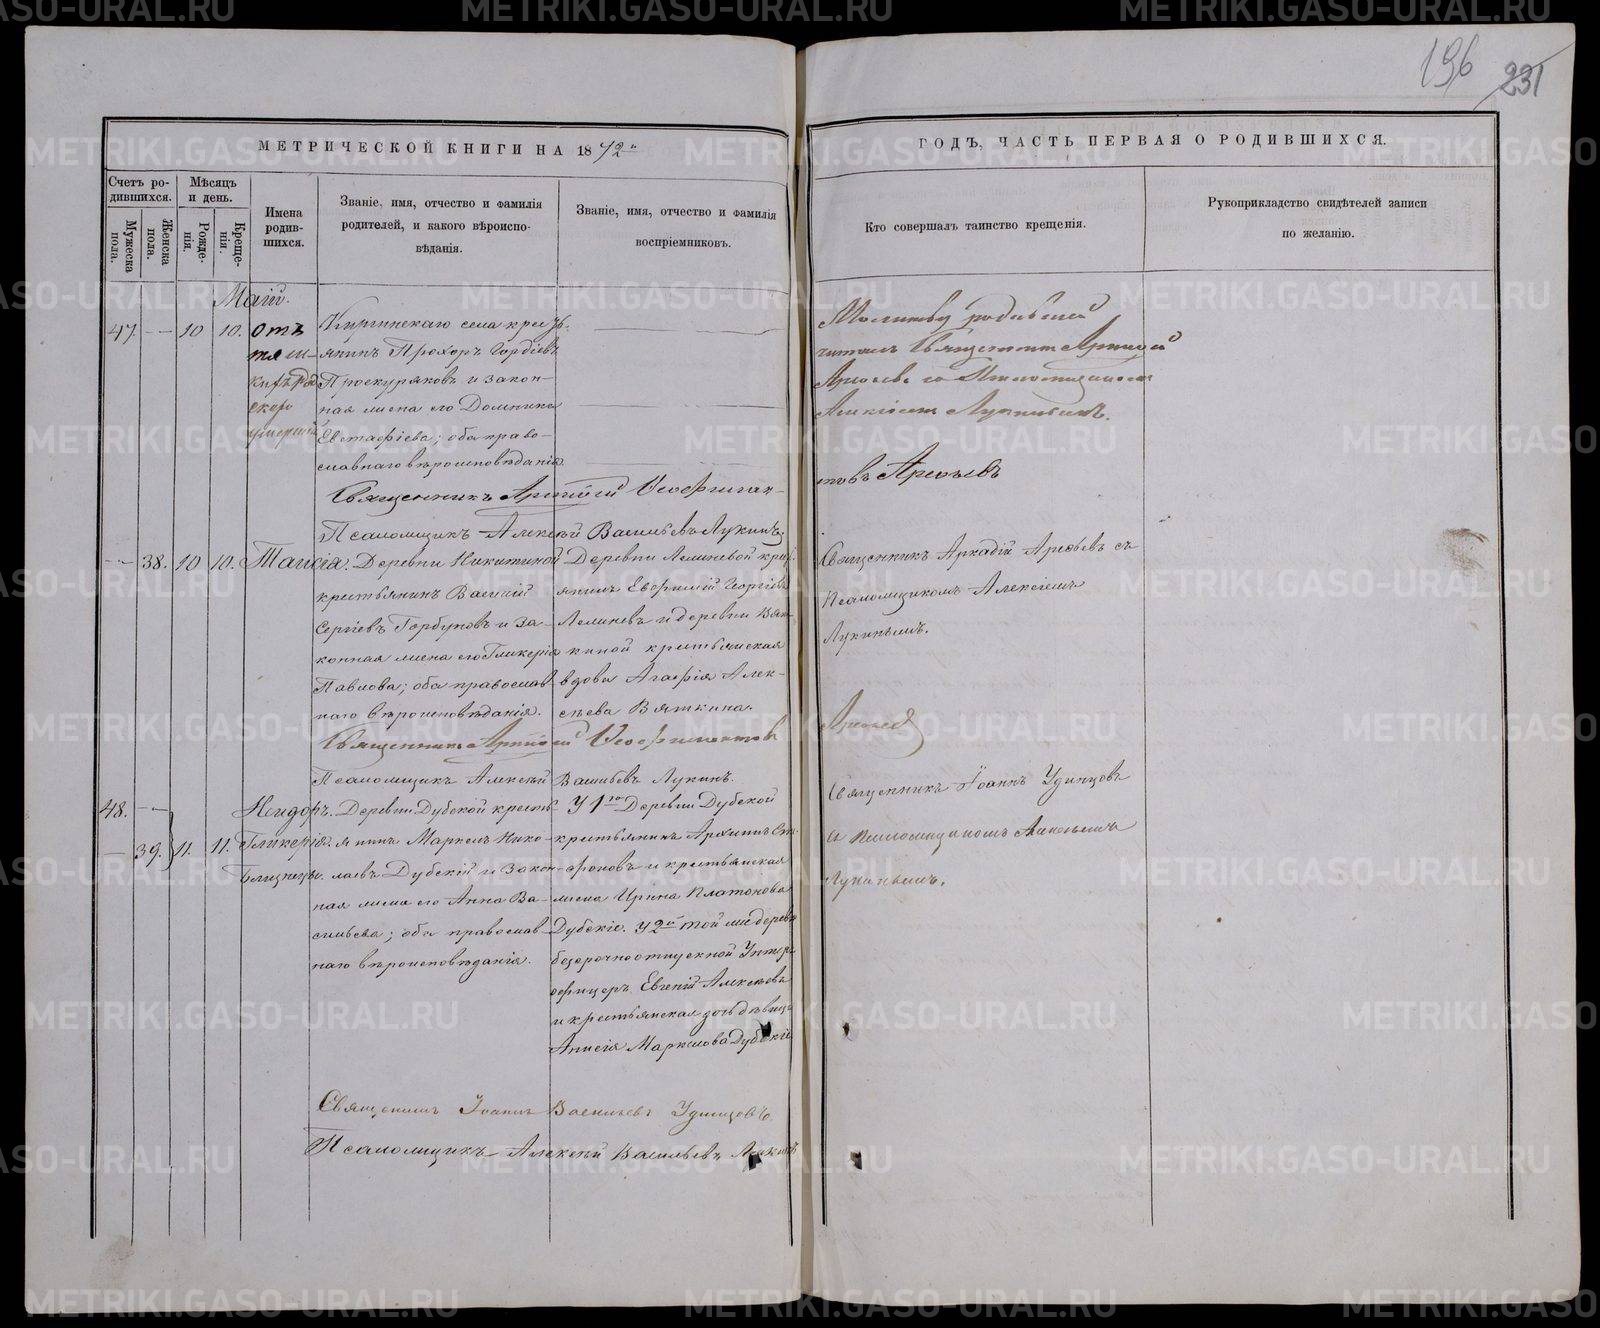 196 231
МЕТРИЧЕСКОЙ КНИГИ НА 1872й
ГОДЪ, ЧАСТЬ ПЕРВАЯ О РОДИВШИХСЯ.
Счетъ ро-
дившихся.
Мужеска
пола.
Женска
пола.
Мѣсяцъ
и день.
Рожде-
нія.
Креще-
нія.
Имена
родив-
шихся.
Званіе, имя, отчество и фамилія
родителей, и какого вѣроиспо-
вѣданія.
Званіе, имя, отчество и фамилія
воспріемниковъ.
Кто совершалъ таинство крещенія.
Рукоприкладство свидѣтелей записи
по желанію.
Маій.
47. — 10 10.
Киргинскаго села кресть-
янинъ Прохоръ Гордіевъ
Проскуряковъ и закон-
ная жена его Домника
Евстафіева; оба право-
славнаго вѣроисповѣданія.
Молитву
читалъ Священникъ Аркадій
Священникъ Аркадій Ѳеофилак-
товъ Арефьевъ
Псаломщикъ Алексѣй Васильевъ Лукинъ.
— 38. 10 10. Таисія.
Деревни Никитиной
крестьянинъ Василій
Сергіевъ Горбуновъ и за-
конная жена его Гликерія
Павлова; оба православ-
наго вѣроисповѣданія.
Деревни Лелиневой крес-
янинъ Евфимій Георгіевъ
Лелиневъ и деревни Вят-
киной крестьянская
вдова Агафія Алек-
сѣева Вяткина.
Священникъ Аркадій Арефьевъ съ
Псаломщикомъ Алексіемъ
Лукинымъ.
Священникъ Аркадій Ѳеофилактовъ
Арефьевъ
Псаломщикъ Алексѣй Васильевъ Лукинъ.
48. —
— 39. 11. 11.
Исидоръ.
Гликерія.
Близнецы.
Деревни Дубской кресть-
янинъ Маркелъ Нико-
лаевъ Дубскій и закон-
ная жена его Анна Ва-
сильева; оба православ-
наго вѣроисповѣданія.
У 1го Деревни Дубской
крестьянинъ Архипъ
и крестьянская
жена Ирина Платонова
Дубскіе. У 2й той же деревни
безсрочноотпускной Унтеръ
офицеръ Евгеній Алексѣевъ
и крестьянская дочь дѣвица
Анисія Маркелова Дубскіе
Священникъ Іоаннъ Удинцовъ
съ Псаломщикомъ Алексѣемъ
Лукинымъ.
Священникъ Іоаннъ Васильевъ Удинцовъ
Псаломщикъ Алексѣй Васильевъ Лукинъ
METRIKI.GASO-URAL.RU